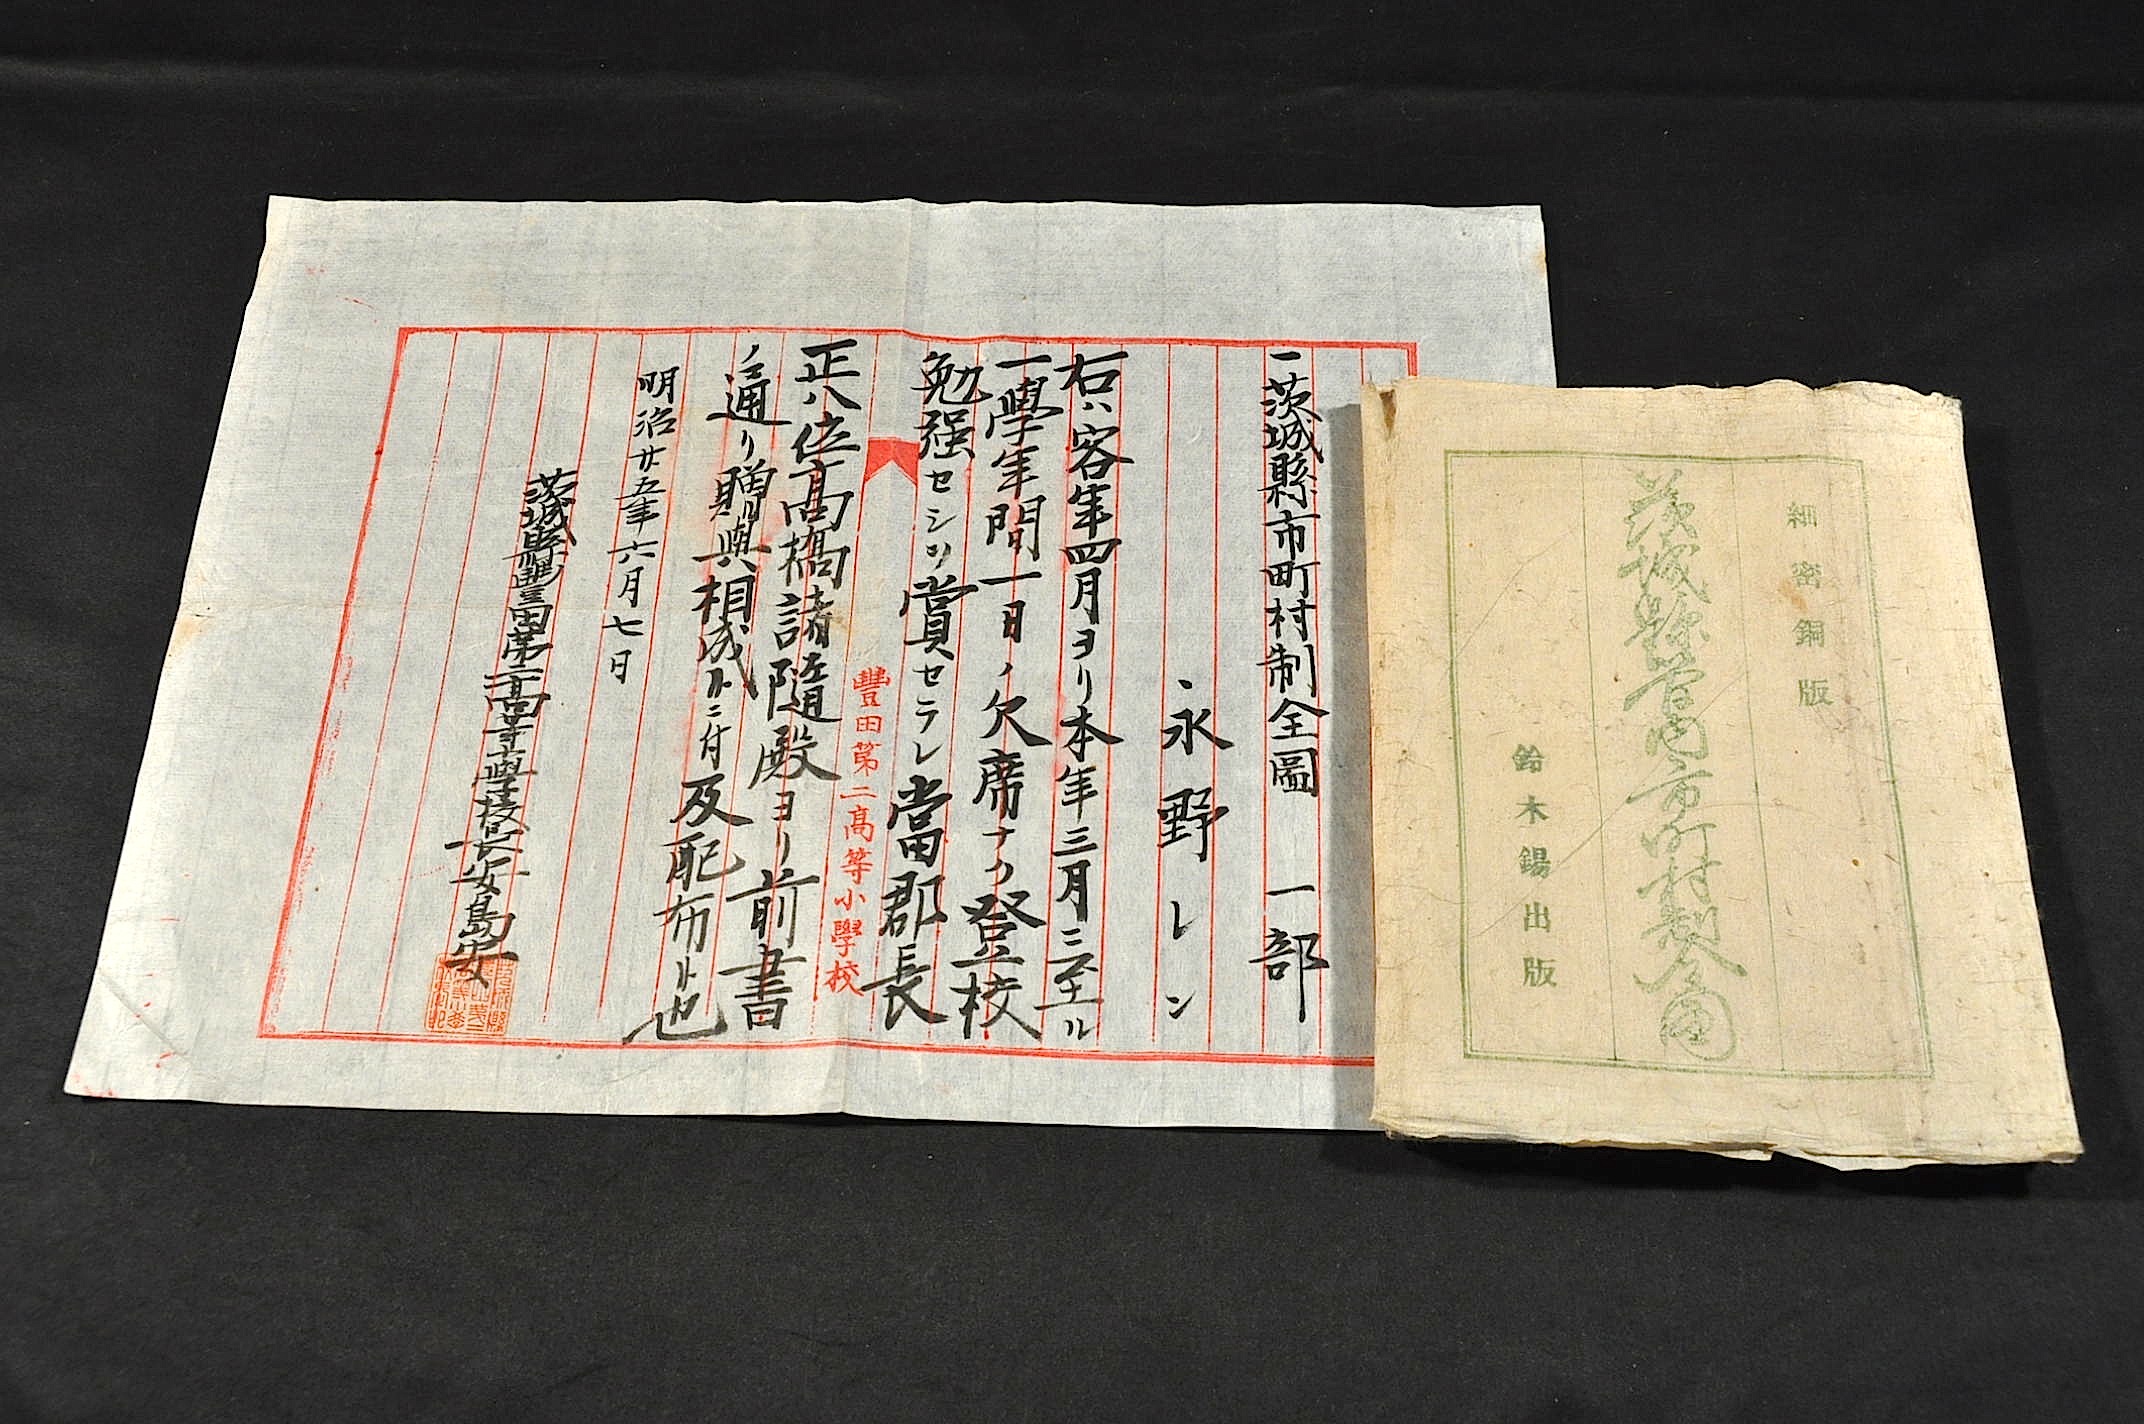 一茨城縣市町村制全圖 一部
永野レン
右ハ客年四月ヨリ本年三月ニ至ル
一學年間一日ノ欠席ナク登校
勉强セシヲ賞セラレ當郡長
豐田第二高等小學校
正八位高橋諸隨殿ヨリ前書
ノ通リ贈與相成候ニ付及配布候也
明治廿五年六月七日
茨城縣豐田第二高等小學校長安島安
細密銅版
茨城縣管内市町村制全圖
鈴木錫出版